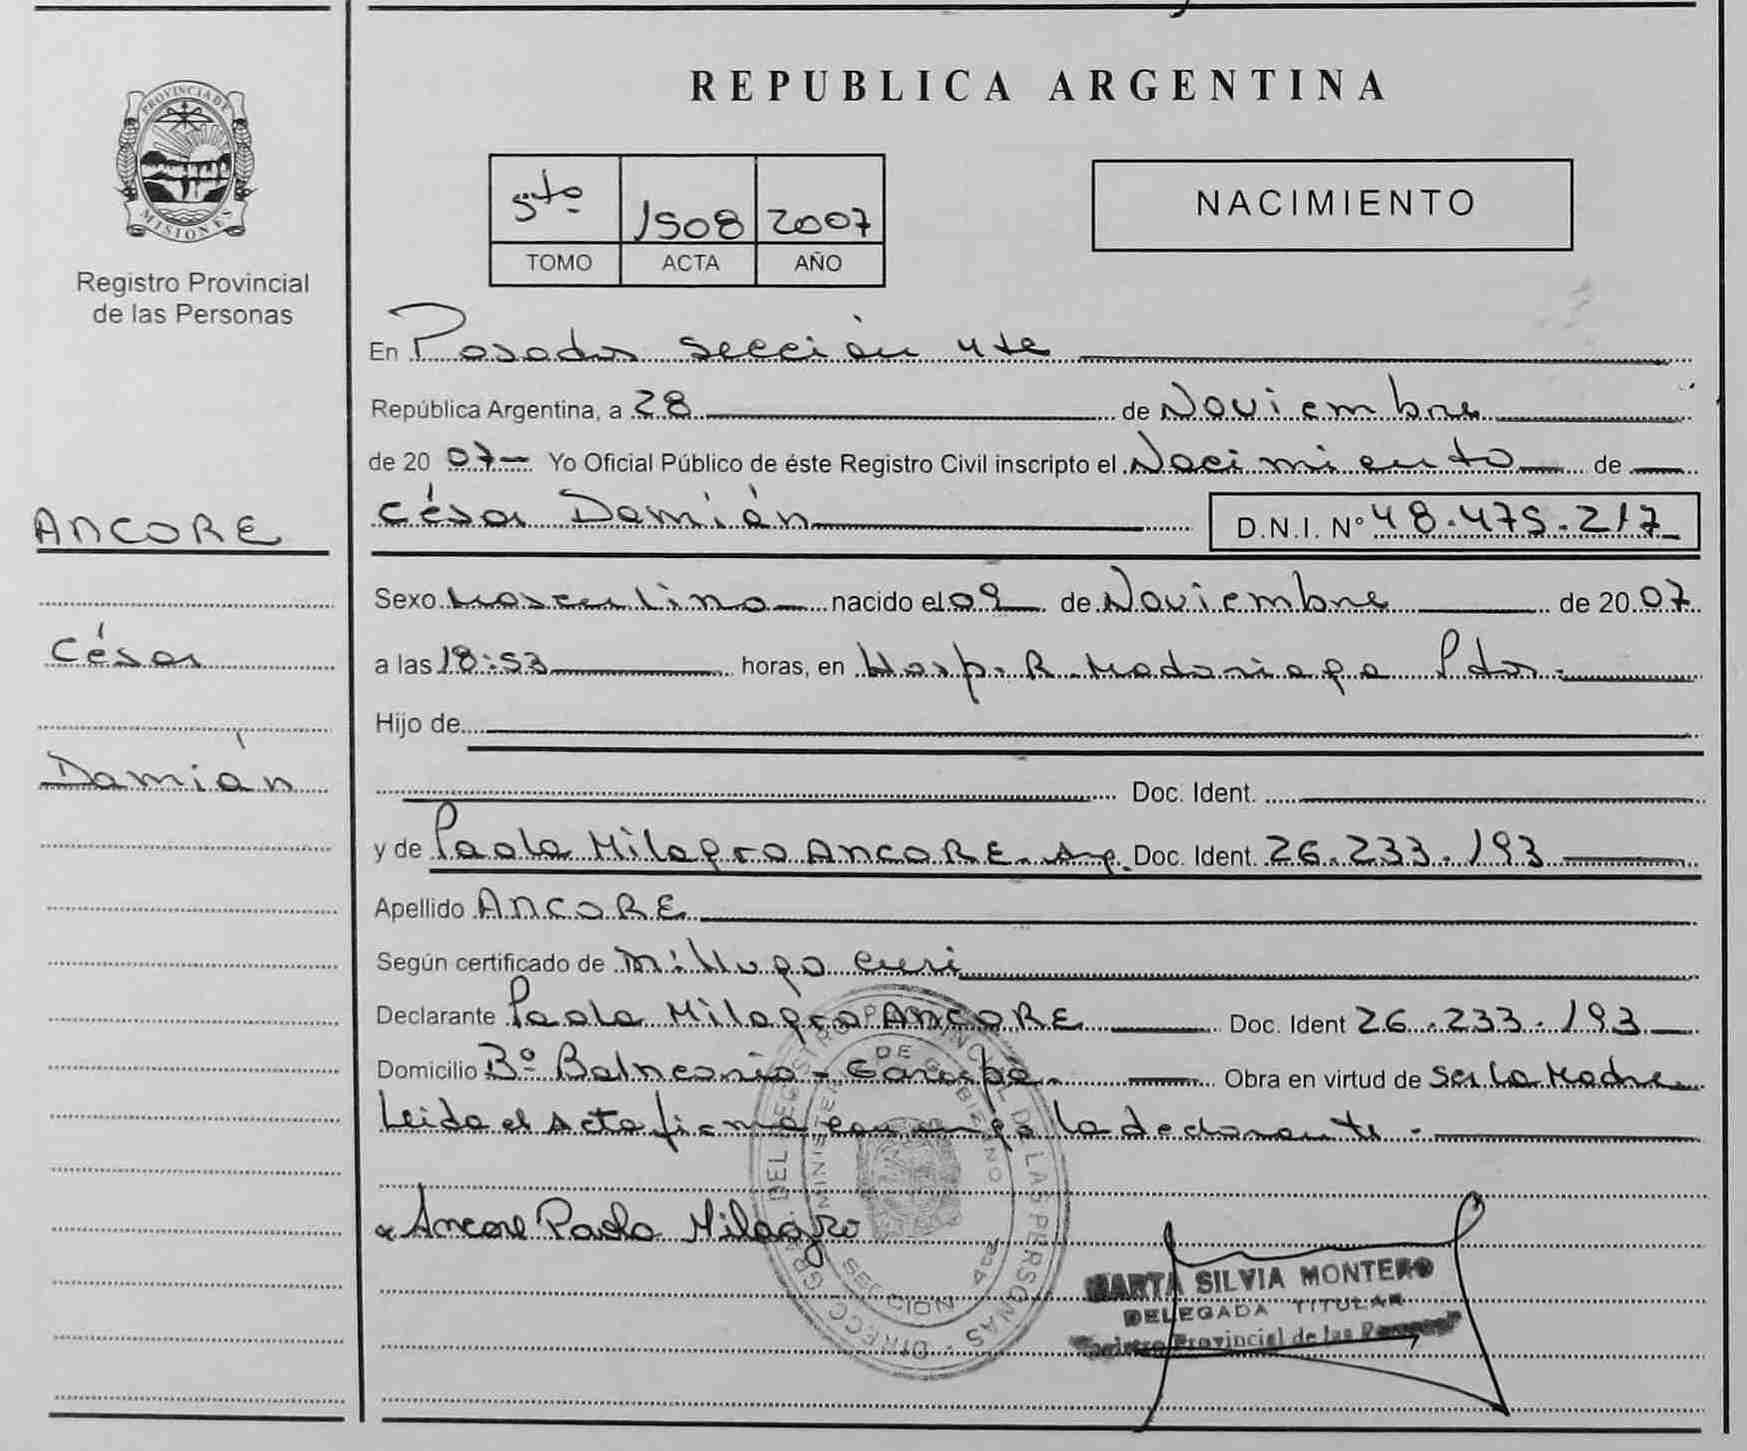 REPUBLICA ARGENTINA
PROVINCIA DE
MISIONES
Registro Provincial
de las Personas
5to 1508 2007
TOMO ACTA AÑO
NACIMIENTO
En Posadas sección 4ta
República Argentina, a 28 de Noviembre
de 2007 Yo Oficial Público de éste Registro Civil inscripto el Nacimiento de
César Damián D.N.I. Nº 48.475.217
ANCORE
César
Damián
Sexo Masculino nacido el 09 de Noviembre de 2007
a las 18:53 horas, en Hosp. R. Madariaga Pdas.
Hijo de
Doc. Ident.
y de Paola Milagro ANCORE Doc. Ident. 26.233.193
Apellido ANCORE
Según certificado de
Declarante Paola Milagro ANCORE Doc. Ident 26.233.193
Domicilio Bº Balneario - Garupá Obra en virtud de Ser la Madre
Leida el acta firma conmigo la declarante.
Ancore Paola Milagro
DIRECC. GRAL. DEL REGISTRO PROVINCIAL DE LAS PERSONAS
MINISTERIO DE GOBIERNO
SECCION 4ta
MARTA SILVIA MONTERO
DELEGADA TITULAR
Registro Provincial de las Personas